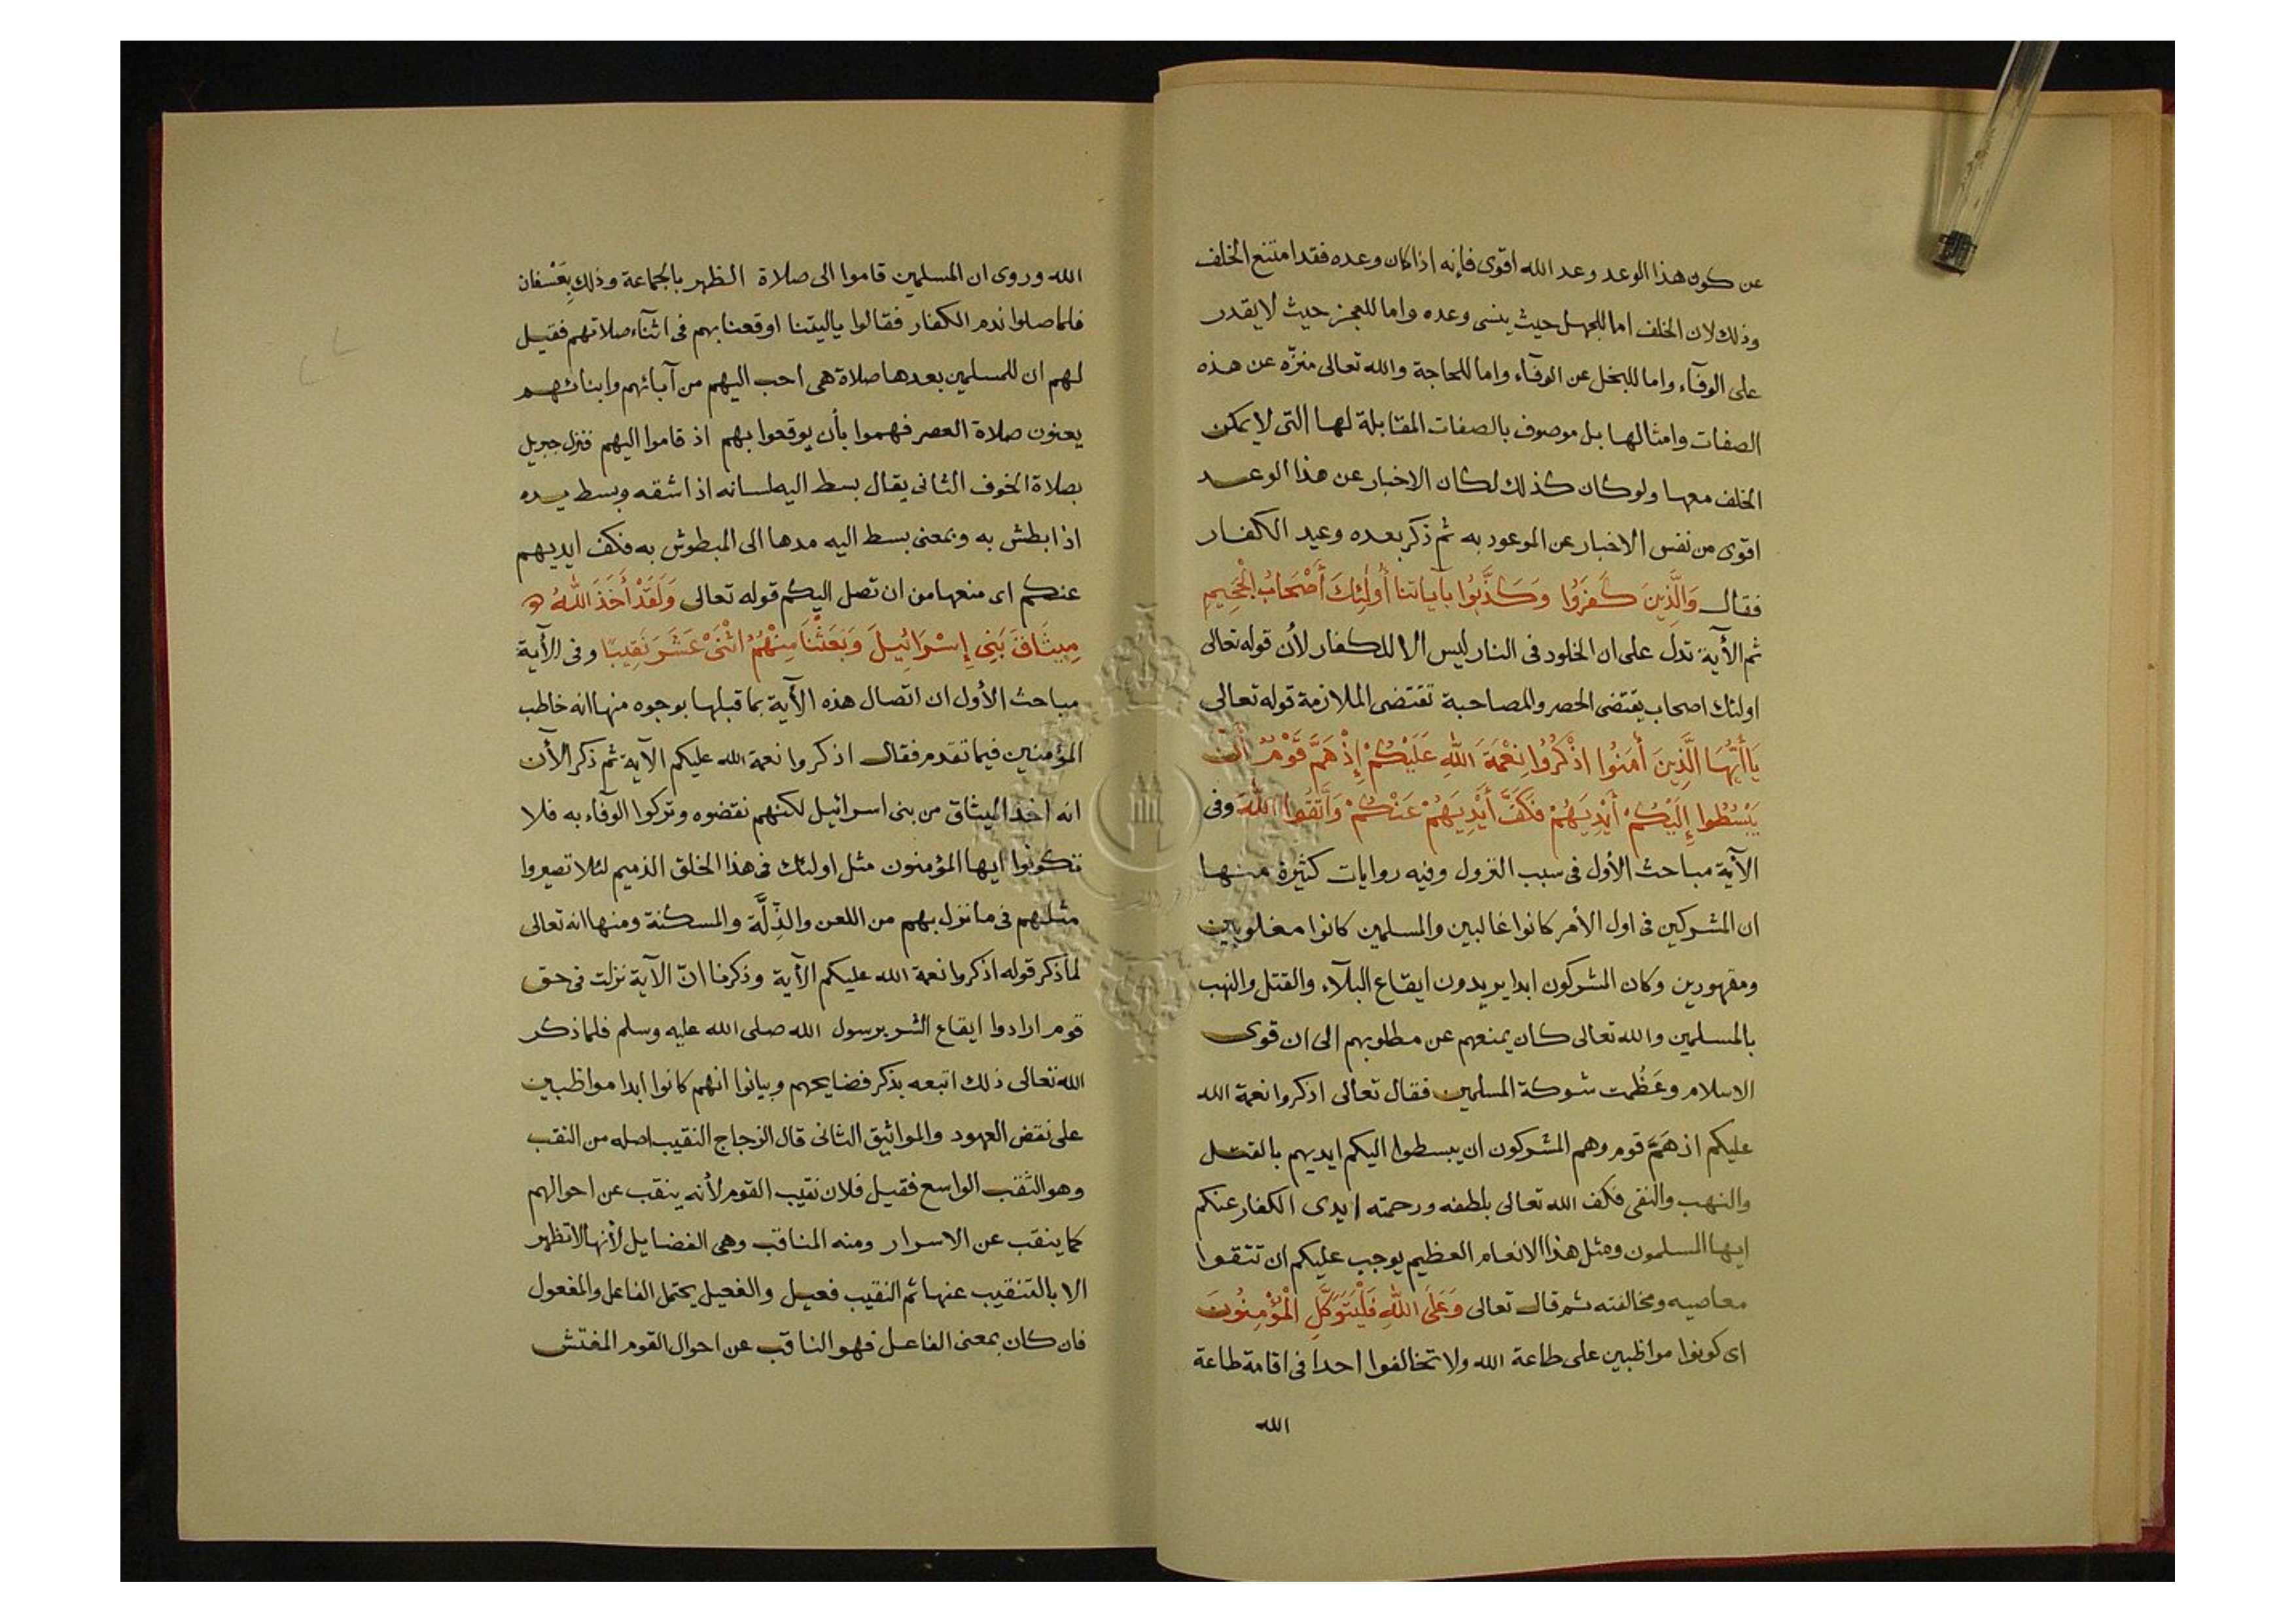 عن كون هذا الوعد وعد الله اقوى فإنه اذا كان وعده فقد امتنع الخلف
وذلك لان الخلف اما للجهل حيث ينسى وعده واما للعجز حيث لا يقدر
على الوفآء واما للبخل عن الوفآء واما للحاجة والله تعالى منزّه عن هذه
الصفات وامثالها بل موصوف بالصفات المقابلة لها التى لا يمكن
الخلف معها ولو كان كذلك لكان الاخبار عن هذا الوعد
اقوى من نفس الاخبار عن الموعود به ثم ذكر بعده وعيد الكفار
فقال وَالَّذِينَ كَفَرُوا وَكَذَّبُوا بِآيَاتِنَا أُولَٰئِكَ أَصْحَابُ الْجَحِيمِ
ثم الآية تدل على ان الخلود فى النار ليس الا للكفار لأن قوله تعالى
اولئك اصحاب يقتضى الحصر والمصاحبة تقتضى الملازمة قوله تعالى
يَاأَيُّهَا الَّذِينَ أٰمَنُوا اذْكُرُوا نِعْمَةَ اللهِ عَلَيْكُمْ إِذْ هَمَّ قَوْمٌ أَنْ
يَبْسُطُوا إِلَيْكُمْ أَيْدِيَهُمْ فَكَفَّ أَيْدِيَهُمْ عَنْكُمْ وَاتَّقُوا اللهَ وفى
الآية مباحث الأول فى سبب النزول وفيه روايات كثيرة منها
ان المشركين فى اول الأمر كانوا غالبين والمسلمين كانوا مغلوبين
ومقهورين وكان المشركون ابدا يريدون ايقاع البلآء والقتل والنهب
بالمسلمين والله تعالى كان يمنعهم عن مطلوبهم الى ان قوى
الاسلام وعَظُمت شوكة المسلمين فقال تعالى اذكروا نعمة الله
عليكم اذ هَمَّ قوم وهم المشركون ان يبسطوا اليكم ايديهم بالقتل
والنهب والنفى فكف الله تعالى بلطفه ورحمته ايدى الكفار عنكم
ايها المسلمون ومثل هذا الانعام العظيم يوجب عليكم ان تتقوا
معاصيه ومخالفته ثم قال تعالى وَعَلَى اللهِ فَلْيَتَوَكَّلِ الْمُؤْمِنُونَ
اى كونوا مواظبين على طاعة الله ولا تخالفوا احدا فى اقامة طاعة
الله
الله وروى ان المسلمين قاموا الى صلاة الظهر بالجماعة وذلك بِعَسْفان
فلما صلوا ندم الكفار فقالوا ياليتنا اوقعنا بهم فى اثنآء صلاتهم فقيل
لهم ان للمسلمين بعدها صلاة هى احب اليهم من آبائهم وابنائهم
يعنون صلاة العصر فهموا بأن يوقعوا بهم اذ قاموا اليهم فنزل جبريل
بصلاة الخوف الثانى يقال بسط اليه لسانه اذا شقه وبسط يده
اذا بطش به وبمعنى بسط اليه مدها الى المبطوش به فكف ايديهم
عنكم اى منعها من ان تصل اليكم قوله تعالى وَلَقَدْ أَخَذَ اللهُ
مِيثَاقَ بَنِى إِسْرَائِيلَ وَبَعَثْنَا مِنْهُمُ اثْنَىْ عَشَرَ نَقِيبًا وفى الآية
مباحث الأول ان اتصال هذه الآية بما قبلها بوجوه منها انه خاطب
المؤمنين فيما تقدم فقال اذكروا نعمة الله عليكم الآية ثم ذكر الآن
انه اخذ الميثاق من بنى اسرائيل لكنهم نقضوه وتركوا الوفآء به فلا
تكونوا ايها المؤمنون مثل اولئك فى هذا الخلق الذميم لئلا تصيروا
مثلهم فى ما نزل بهم من اللعن والذِّلَّة والمسكنة ومنها انه تعالى
لما ذكر قوله اذكروا نعمة الله عليكم الآية وذكرنا انّ الآية نزلت فى حق
قوم ارادوا ايقاع الشر برسول الله صلى الله عليه وسلم فلما ذكر
الله تعالى ذلك اتبعه بذكر فضايحهم وبيانوا انهم كانوا ابدا مواظبين
على نقض العهود والمواثيق الثانى قال الزجاج النقيب اصله من النقب
وهو الثقب الواسع فقيل فلان نقيب القوم لأنه ينقب عن احوالهم
كما ينقب عن الاسرار ومنه المناقب وهى الفضايل لأنها لا تظهر
الا بالتنقيب عنها ثم النقيب فعيل والفعيل يحتمل الفاعل والمفعول
فان كان بمعنى الفاعل فهو الناقب عن احوال القوم المفتش